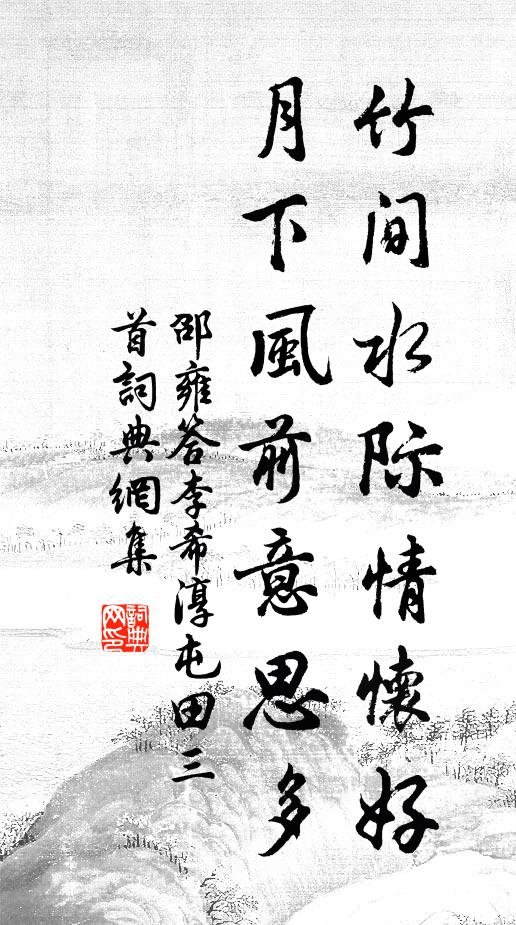 竹间水际情懷好
月下風前意思多
邵雍答李希淳屯田三
首詞典網集
詞典
网印